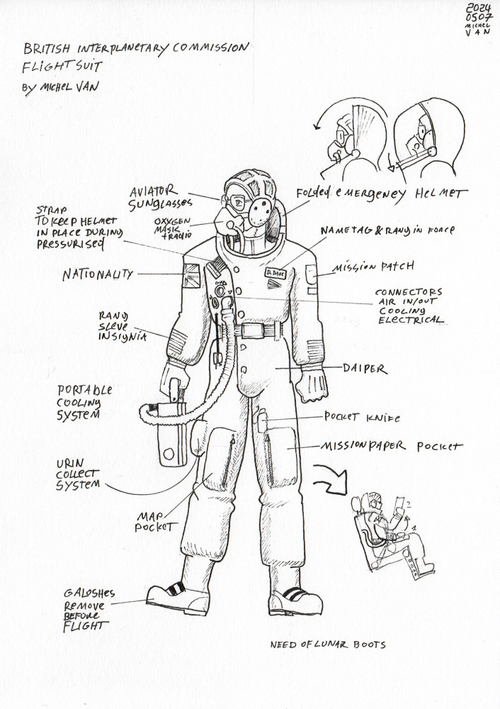 2024
0507
MICHEL
VAN
BRITISH INTERPLANETARY COMMISSION
FLIGHTSUIT
BY MICHEL VAN
AVIATOR
SUNGLASSES
OXYGEN
MASK
+RADIO
STRAP
TO KEEP HELMET
IN PLACE DURING
PRESSURISED
NATIONALITY
RANG
SLEVE
INSIGNIA
PORTABLE
COOLING
SYSTEM
URIN
COLLECT
SYSTEM
MAP
POCKET
GALOSHES
REMOVE
BEFORE
FLIGHT
FOLDED EMERGENCY HELMET
NAMETAG & RANG IN FORCE
MISSION PATCH
CONNECTORS
AIR IN/OUT
COOLING
ELECTRICAL
DAIPER
POCKET KNIFE
MISSIONPAPER POCKET
NEED OF LUNAR BOOTS